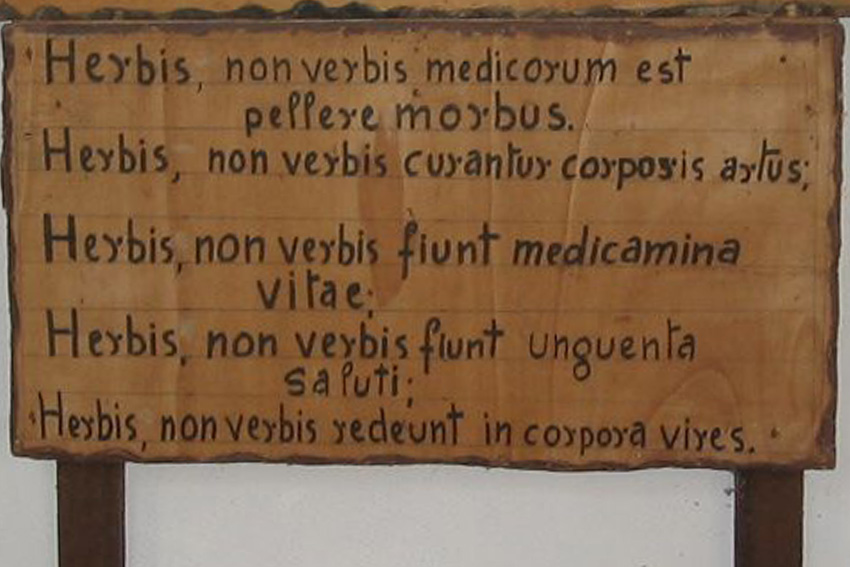 Herbis, non verbis medicorum est
pellere morbus.
Herbis, non verbis curantur corporis artus;
Herbis, non verbis fiunt medicamina
vitae;
Herbis, non verbis fiunt unguenta
saluti;
Herbis, non verbis redeunt in corpora vires.